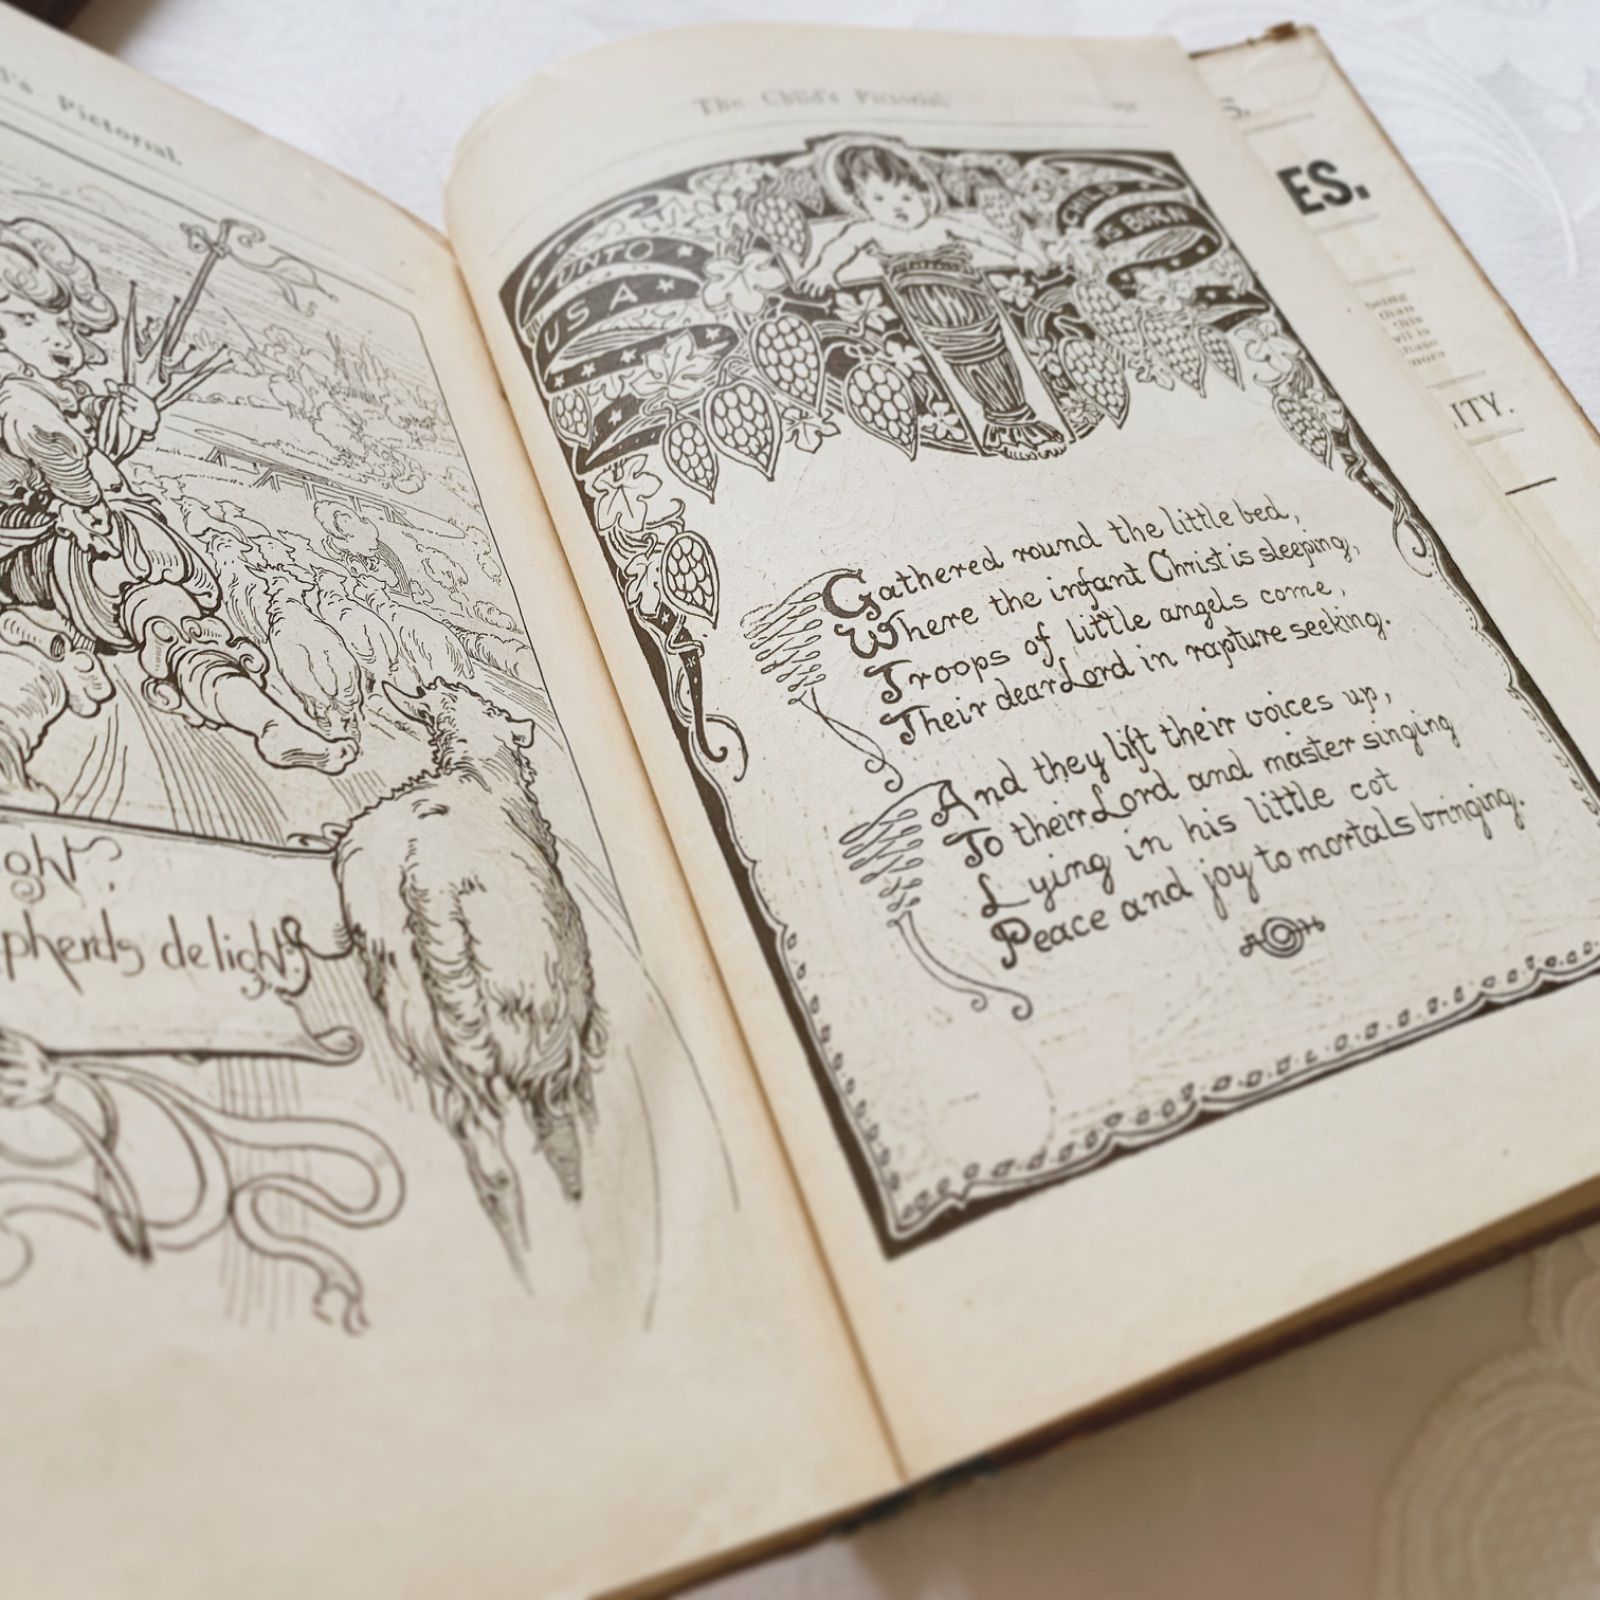 's Pictorial.
ight?
pherds delight?
The Child's Pictorial.
UNTO
US A
CHILD
IS BORN
Gathered round the little bed,
Where the infant Christ is sleeping,
Troops of little angels come,
Their dear Lord in rapture seeking.
And they lift their voices up,
To their Lord and master singing
Lying in his little cot
Peace and joy to mortals bringing.
S.
ES.
being
than
this
vil is
more
ITY.